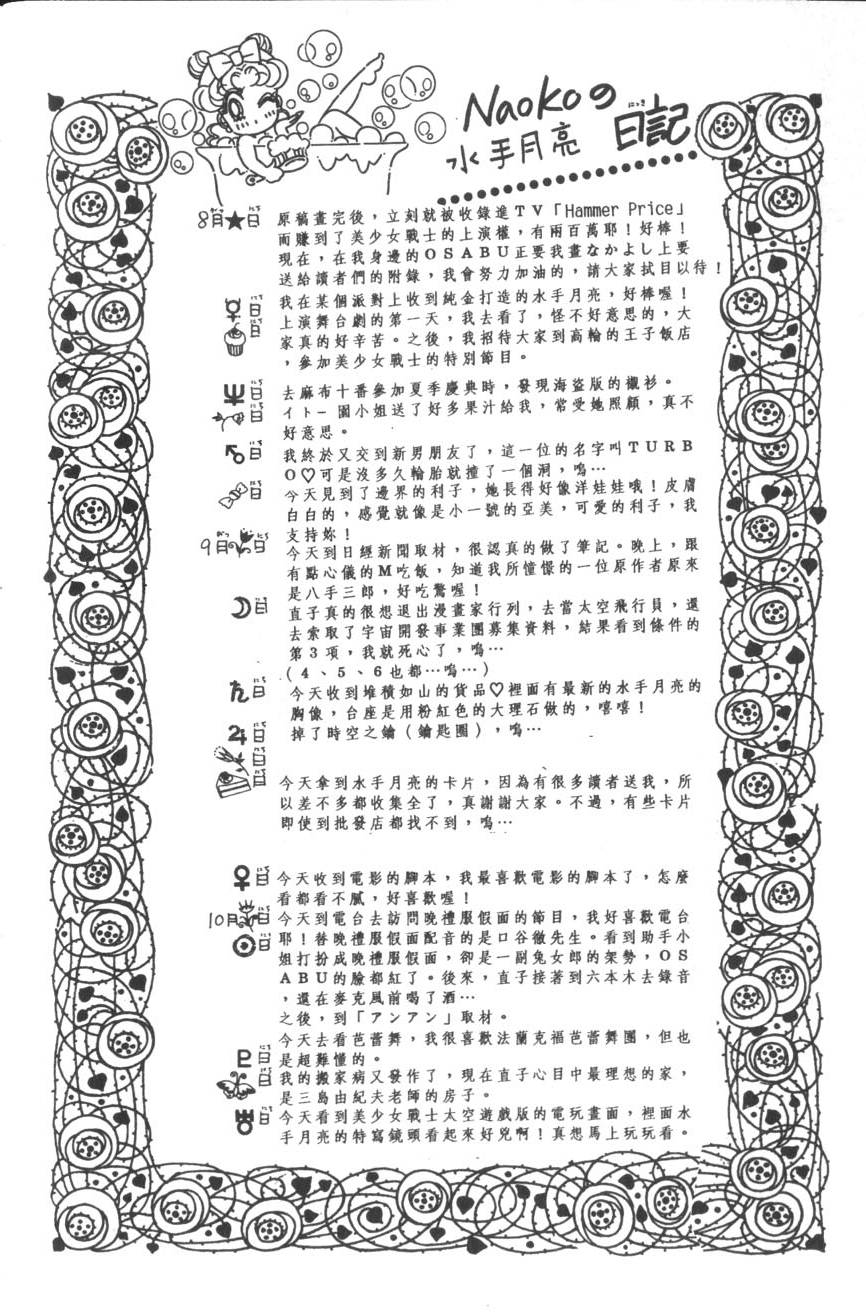 Naokoの
水手月亮 日記
にっき
8月★日
原稿畫完後，立刻就被收錄進TV「Hammer Price」
而賺到了美少女戰士的上演權，有兩百萬耶！好棒！
現在，在我身邊的OSABU正要我畫なかよし上要
送給讀者們的附錄，我會努力加油的，請大家拭目以待！
☿日
我在某個派對上收到純金打造的水手月亮，好棒喔！
日
上演舞台劇的第一天，我去看了，怪不好意思的，大
家真的好辛苦。之後，我招待大家到高輪的王子飯店
，參加美少女戰士的特別節目。
♆日
去麻布十番參加夏季慶典時，發現海盜版的襯衫。
日
イトー園小姐送了好多果汁給我，常受她照顧，真不
好意思。
♂日
我終於又交到新男朋友了，這一位的名字叫TURB
O♡可是沒多久輪胎就撞了一個洞，嗚…
日
今天見到了邊界的利子，她長得好像洋娃娃哦！皮膚
白白的，感覺就像是小一號的亞美，可愛的利子，我
支持妳！
9月日
今天到日經新聞取材，很認真的做了筆記。晚上，跟
有點心儀的M吃飯，知道我所憧憬的一位原作者原來
是八手三郎，好吃驚喔！
☽日
直子真的很想退出漫畫家行列，去當太空飛行員，還
去索取了宇宙開發事業團募集資料，結果看到條件的
第3項，我就死心了，嗚…
(4、5、6也都…嗚…)
♄日
今天收到堆積如山的貨品♡裡面有最新的水手月亮的
胸像，台座是用粉紅色的大理石做的，嘻嘻！
♃日
掉了時空之鑰(鑰匙圈)，嗚…
日
日
今天拿到水手月亮的卡片，因為有很多讀者送我，所
以差不多都收集全了，真謝謝大家。不過，有些卡片
即使到批發店都找不到，嗚…
♀日
今天收到電影的腳本，我最喜歡電影的腳本了，怎麼
看都看不膩，好喜歡喔！
10月日
今天到電台去訪問晚禮服假面的節目，我好喜歡電台
☉日
耶！替晚禮服假面配音的是口谷徹先生。看到助手小
姐打扮成晚禮服假面，卻是一副兔女郎的架勢，OS
ABU的臉都紅了。後來，直子接著到六本木去錄音
，還在麥克風前喝了酒…
之後，到「アンアン」取材。
♇日
今天去看芭蕾舞，我很喜歡法蘭克福芭蕾舞團，但也
是超難懂的。
日
我的搬家病又發作了，現在直子心目中最理想的家，
是三島由紀夫老師的房子。
♅日
今天看到美少女戰士太空遊戲版的電玩畫面，裡面水
手月亮的特寫鏡頭看起來好兇啊！真想馬上玩玩看。